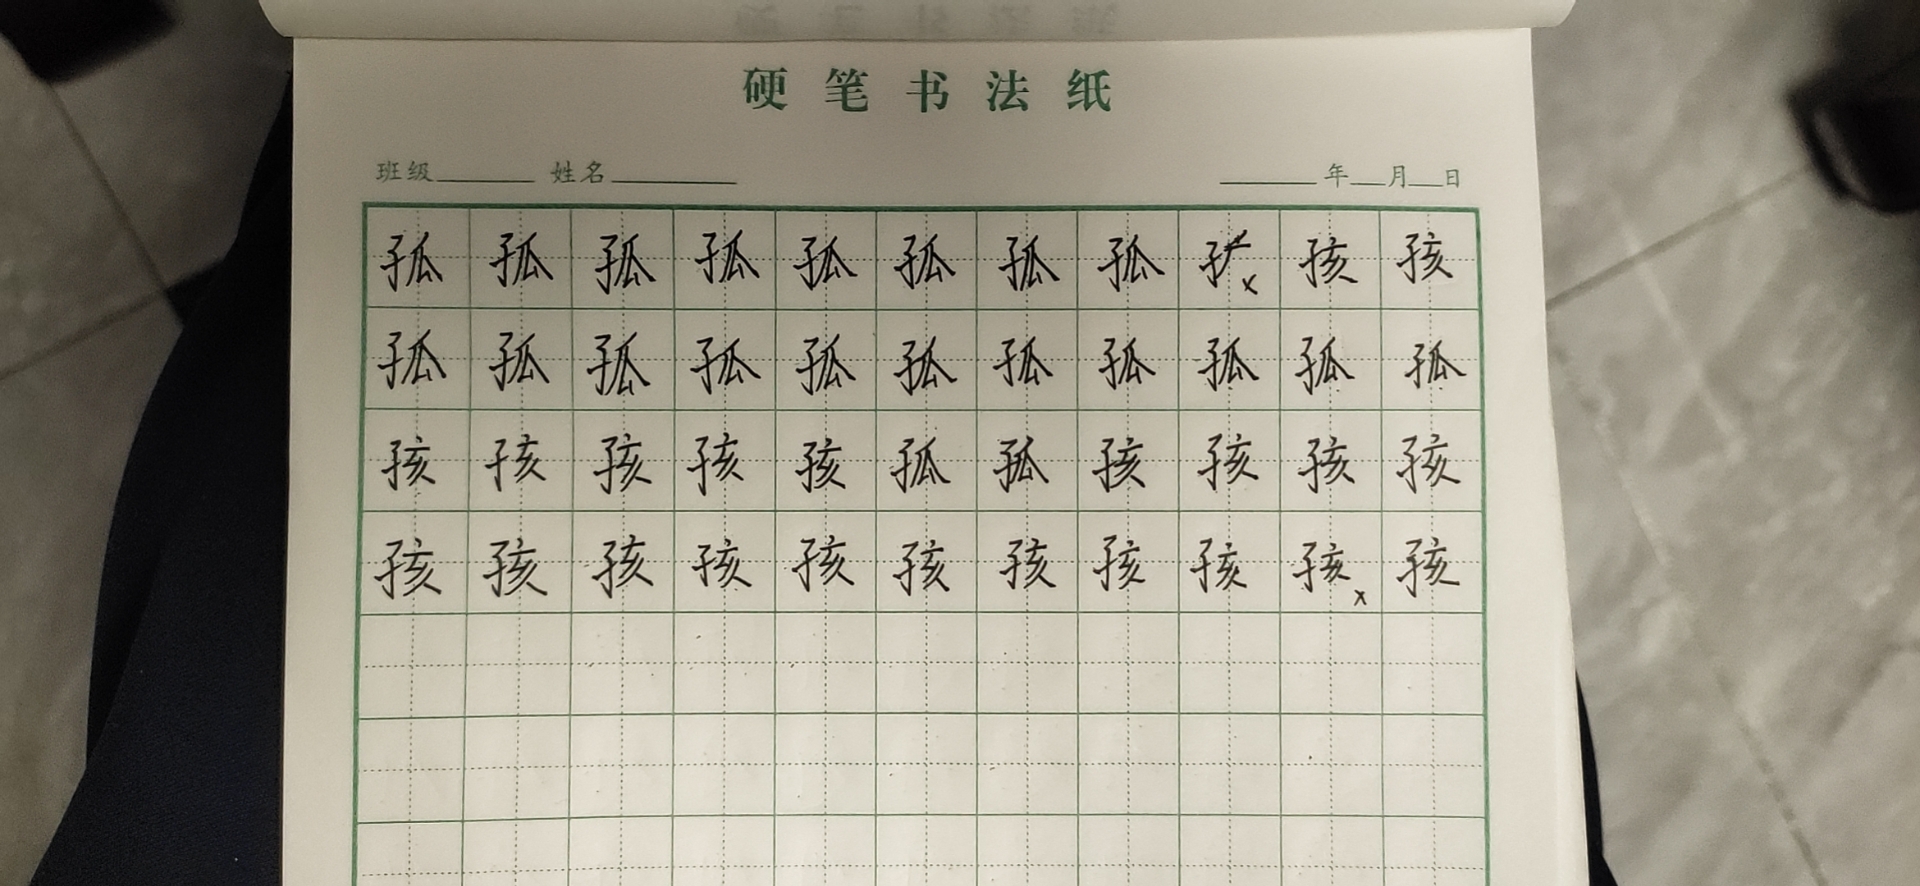 硬笔书法纸
班级 姓名 年 月 日
孤孤孤孤孤孤孤孤 x 孩孩
孤孤孤孤孤孤孤孤孤孤孤
孩孩孩孩孩孤孤孩孩孩孩
孩孩孩孩孩孩孩孩孩孩x孩